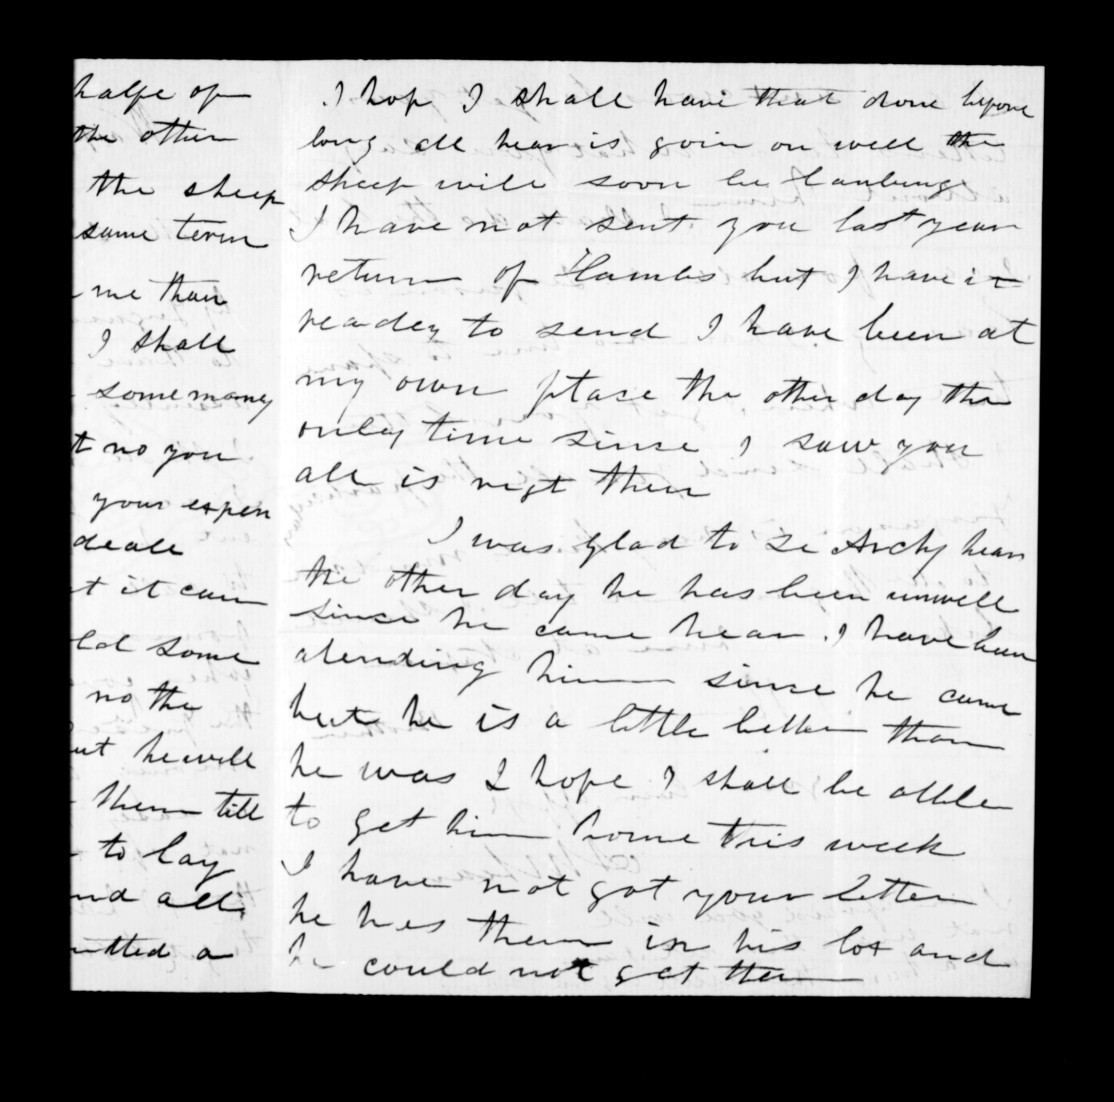 halfe of
the other
the sheep
same term
me than
I shall
some maney
t no you
your expen
deale
t it can
old some
no the
ut he will
them till
to lay
nd all
mtted a
I hop I shall have that done before
long all hear is goin on well the
sheep will soon be lambing
I have not sent you last year
return of Hambs but I have it
readey to send I have been at
my own place the other day the
onley time since I saw you
all is rigt ther
I was glad to se Archy hear
the other day he has been unwell
since he came hear. I have been
atending him since he came
but he is a little better than
he was I hope I shall be able
to get him home this week
I have not got your letter
he has them in his lot and
he could not get them